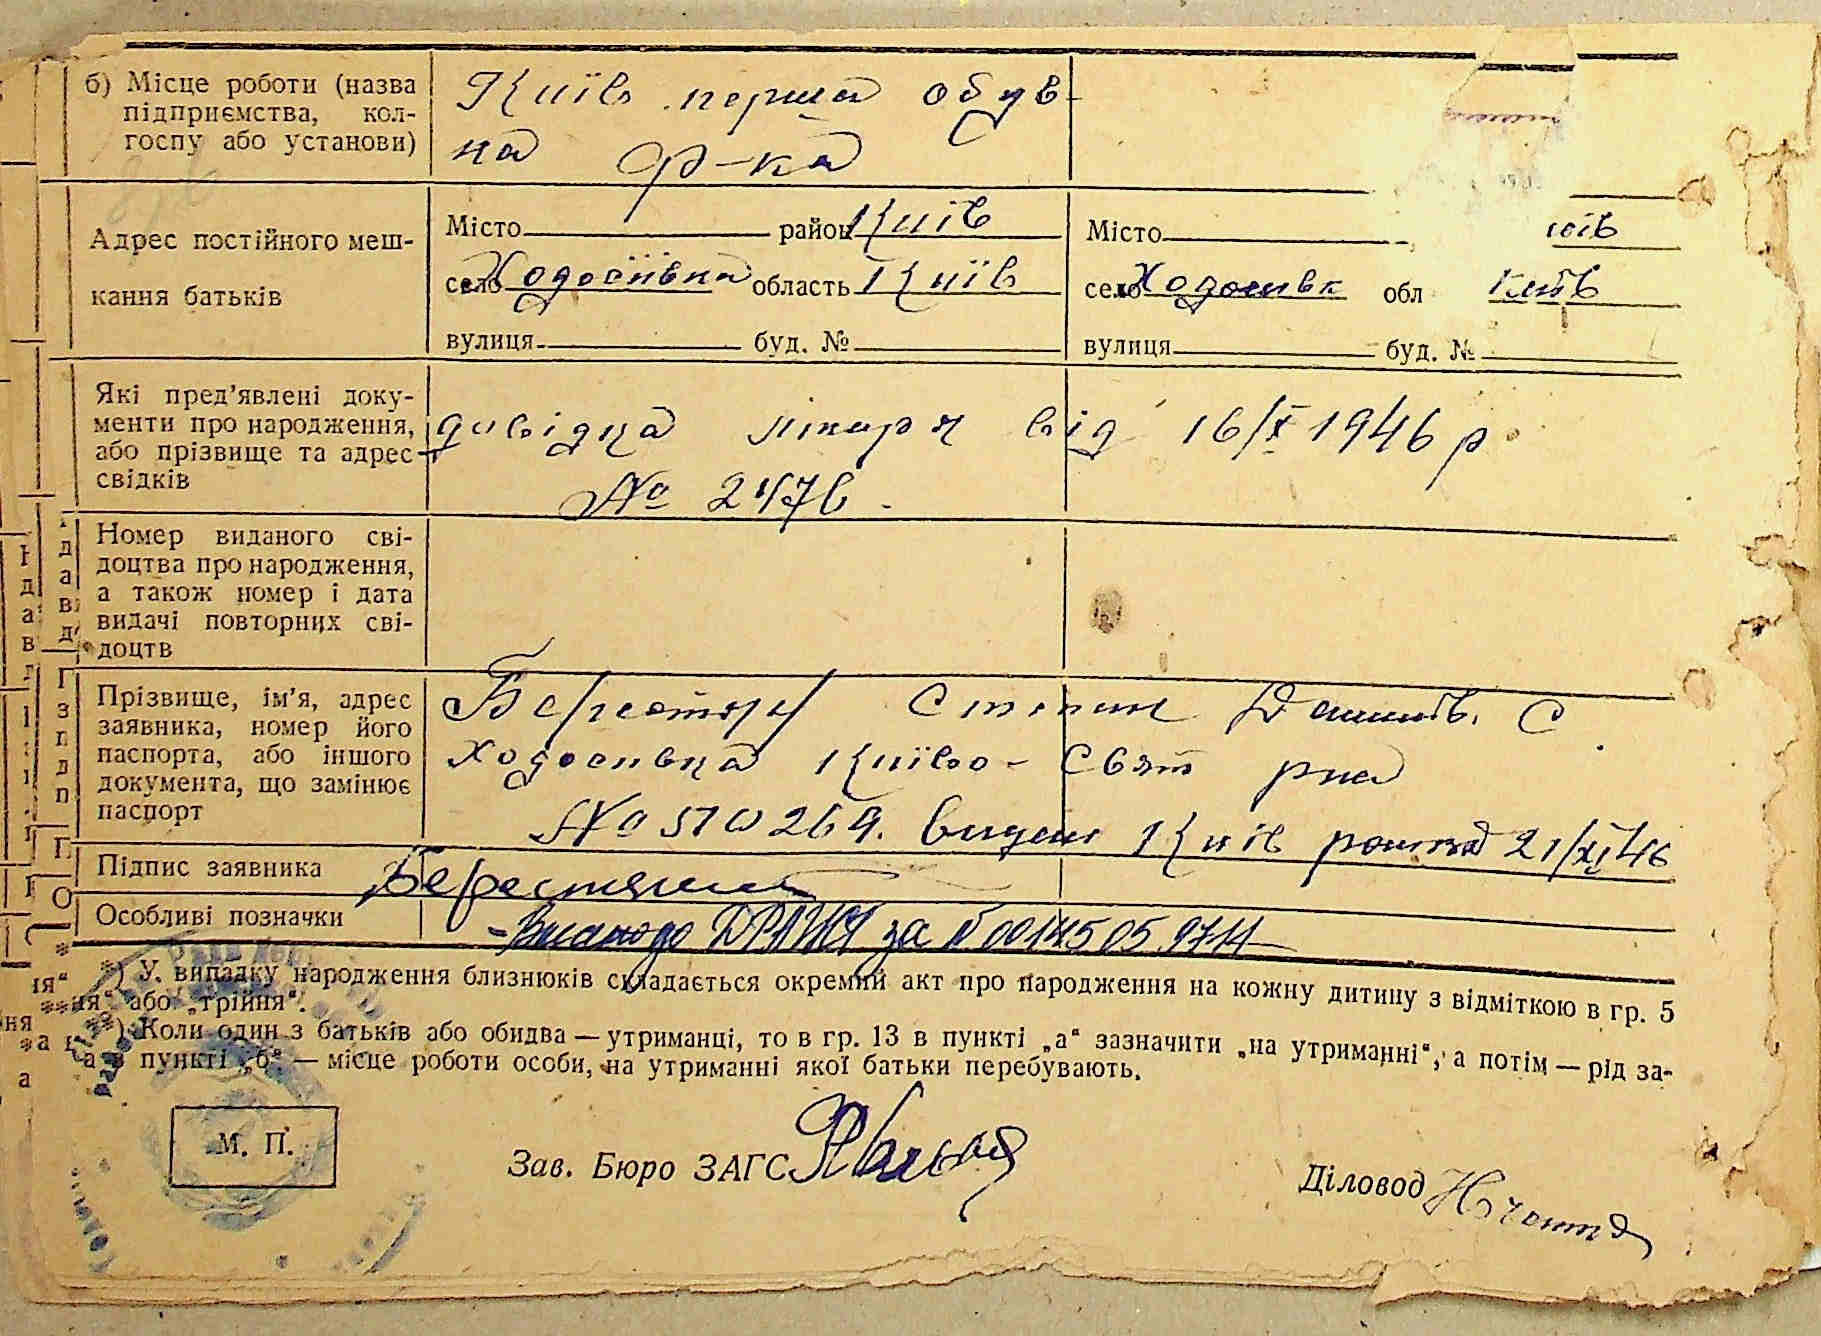 б) Місце роботи (назва
підприємства, кол-
госпу або установи)
Київ перша обув-
на ф-ка
Адрес постійного меш-
кання батьків
Місто район Київ
село Ходосівка область Київ
вулиця буд. №
Місто иїв
село Ходосівк обл Київ
вулиця буд. №
Які пред'явлені доку-
менти про народження,
або прізвище та адрес
свідків
довідка лікаря від 16/X 1946 р
№ 2476.
Номер виданого сві-
доцтва про народження,
а також номер і дата
видачі повторних сві-
доцтв
Прізвище, ім'я, адрес
заявника, номер його
паспорта, або іншого
документа, що замінює
паспорт
Степан С
Ходосівка Києво-Свят рна
№ 269. видан Київ 21/XI 46
Підпис заявника
Особливі позначки
- Внесено до ДРАЦСГ за №
*) У випадку народження близнюків складається окремий акт про народження на кожну дитину з відміткою в гр. 5
або „трійня“.
**) Коли один з батьків або обидва — утриманці, то в гр. 13 в пункті „а“ зазначити „на утриманні“, а потім — рід за-
а в пункті „б“ — місце роботи особи, на утриманні якої батьки перебувають.
М. П.
Зав. Бюро ЗАГС
Діловод